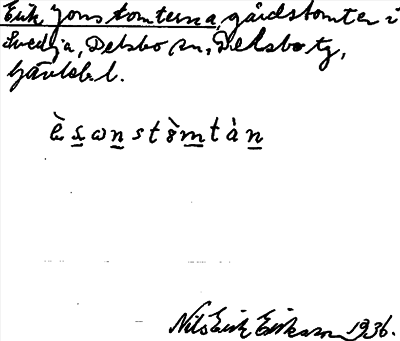 Erik Jonstomterna, gårdstomter i
Svedja, Delsbo sn, Delsbo tg,
Gävlebl.
è s ω n s t ò m t à n
Nils Erik Eriksson 1936.